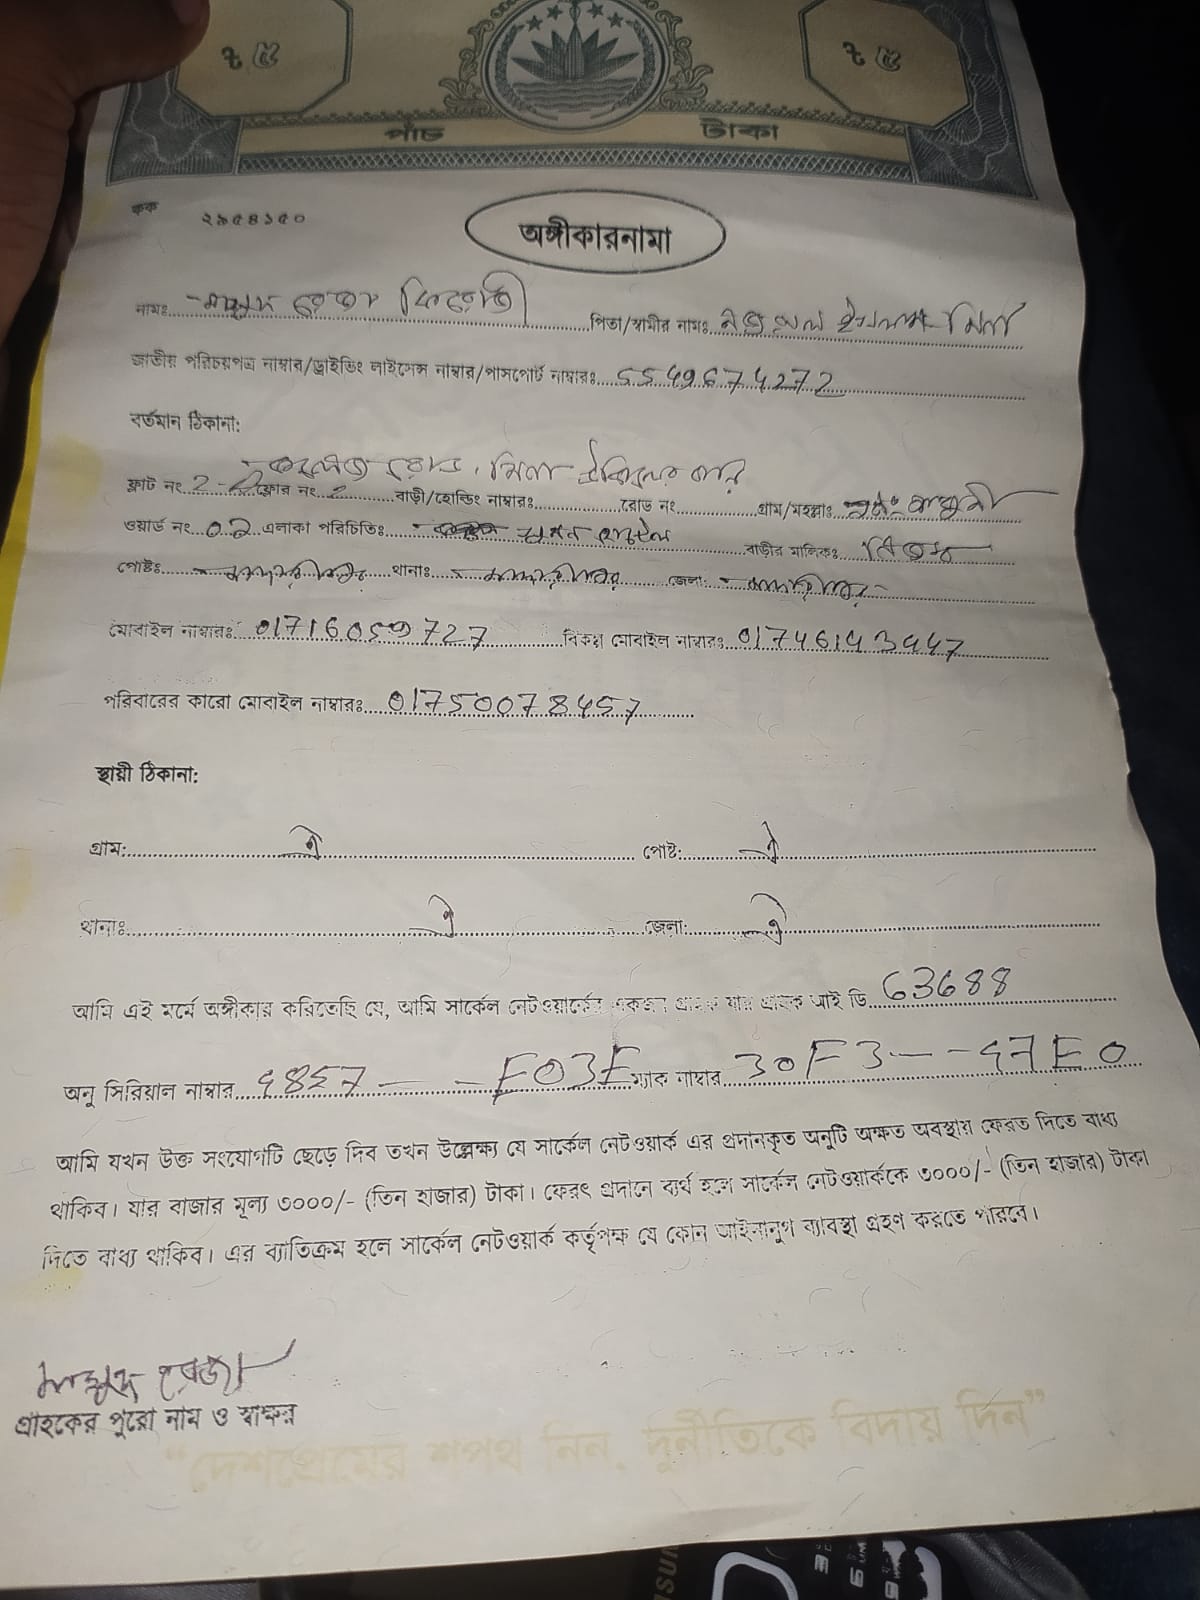 ৳ ৫ ৳ ৫
পাঁচ টাকা
কক ২৯৫৪১৫০
অঙ্গীকারনামা
নামঃ পিতা/স্বামীর নামঃ
জাতীয় পরিচয়পত্র নাম্বার/ড্রাইভিং লাইসেন্স নাম্বার/পাসপোর্ট নাম্বারঃ 5549674272
বর্তমান ঠিকানা:
ফ্লাট নং 2- ফ্লোর নং 2 বাড়ী/হোল্ডিং নাম্বারঃ রোড নং গ্রাম/মহল্লাঃ
ওয়ার্ড নং 02 এলাকা পরিচিতিঃ বাড়ীর মালিকঃ নিজস্ব
পোষ্টঃ থানাঃ জেলা:
মোবাইল নাম্বারঃ 01716059727 বিকল্প মোবাইল নাম্বারঃ 01746143447
পরিবারের কারো মোবাইল নাম্বারঃ 01750078457
স্থায়ী ঠিকানা:
গ্রাম: ঐ পোষ্ট: ঐ
থানাঃ ঐ জেলা: ঐ
আমি এই মর্মে অঙ্গীকার করিতেছি যে, আমি সার্কেল নেটওয়ার্কের একজন গ্রাহক যার গ্রাহক আই ডি 63688
অনু সিরিয়াল নাম্বার 4857 -- F03E ম্যাক নাম্বার 30F3 -- 47E0
আমি যখন উক্ত সংযোগটি ছেড়ে দিব তখন উল্লেক্ষ্য যে সার্কেল নেটওয়ার্ক এর প্রদানকৃত অনুটি অক্ষত অবস্থায় ফেরত দিতে বাধ্য
থাকিব। যার বাজার মূল্য ৩০০০/- (তিন হাজার) টাকা। ফেরৎ প্রদানে ব্যর্থ হলে সার্কেল নেটওয়ার্ককে ৩০০০/- (তিন হাজার) টাকা
দিতে বাধ্য থাকিব। এর ব্যতিক্রম হলে সার্কেল নেটওয়ার্ক কর্তৃপক্ষ যে কোন আইনানুগ ব্যাবস্থা গ্রহণ করতে পারবে।
মাহমুদ রেজা
গ্রাহকের পুরো নাম ও স্বাক্ষর
“দেশপ্রেমের শপথ নিন, দুর্নীতিকে বিদায় দিন”